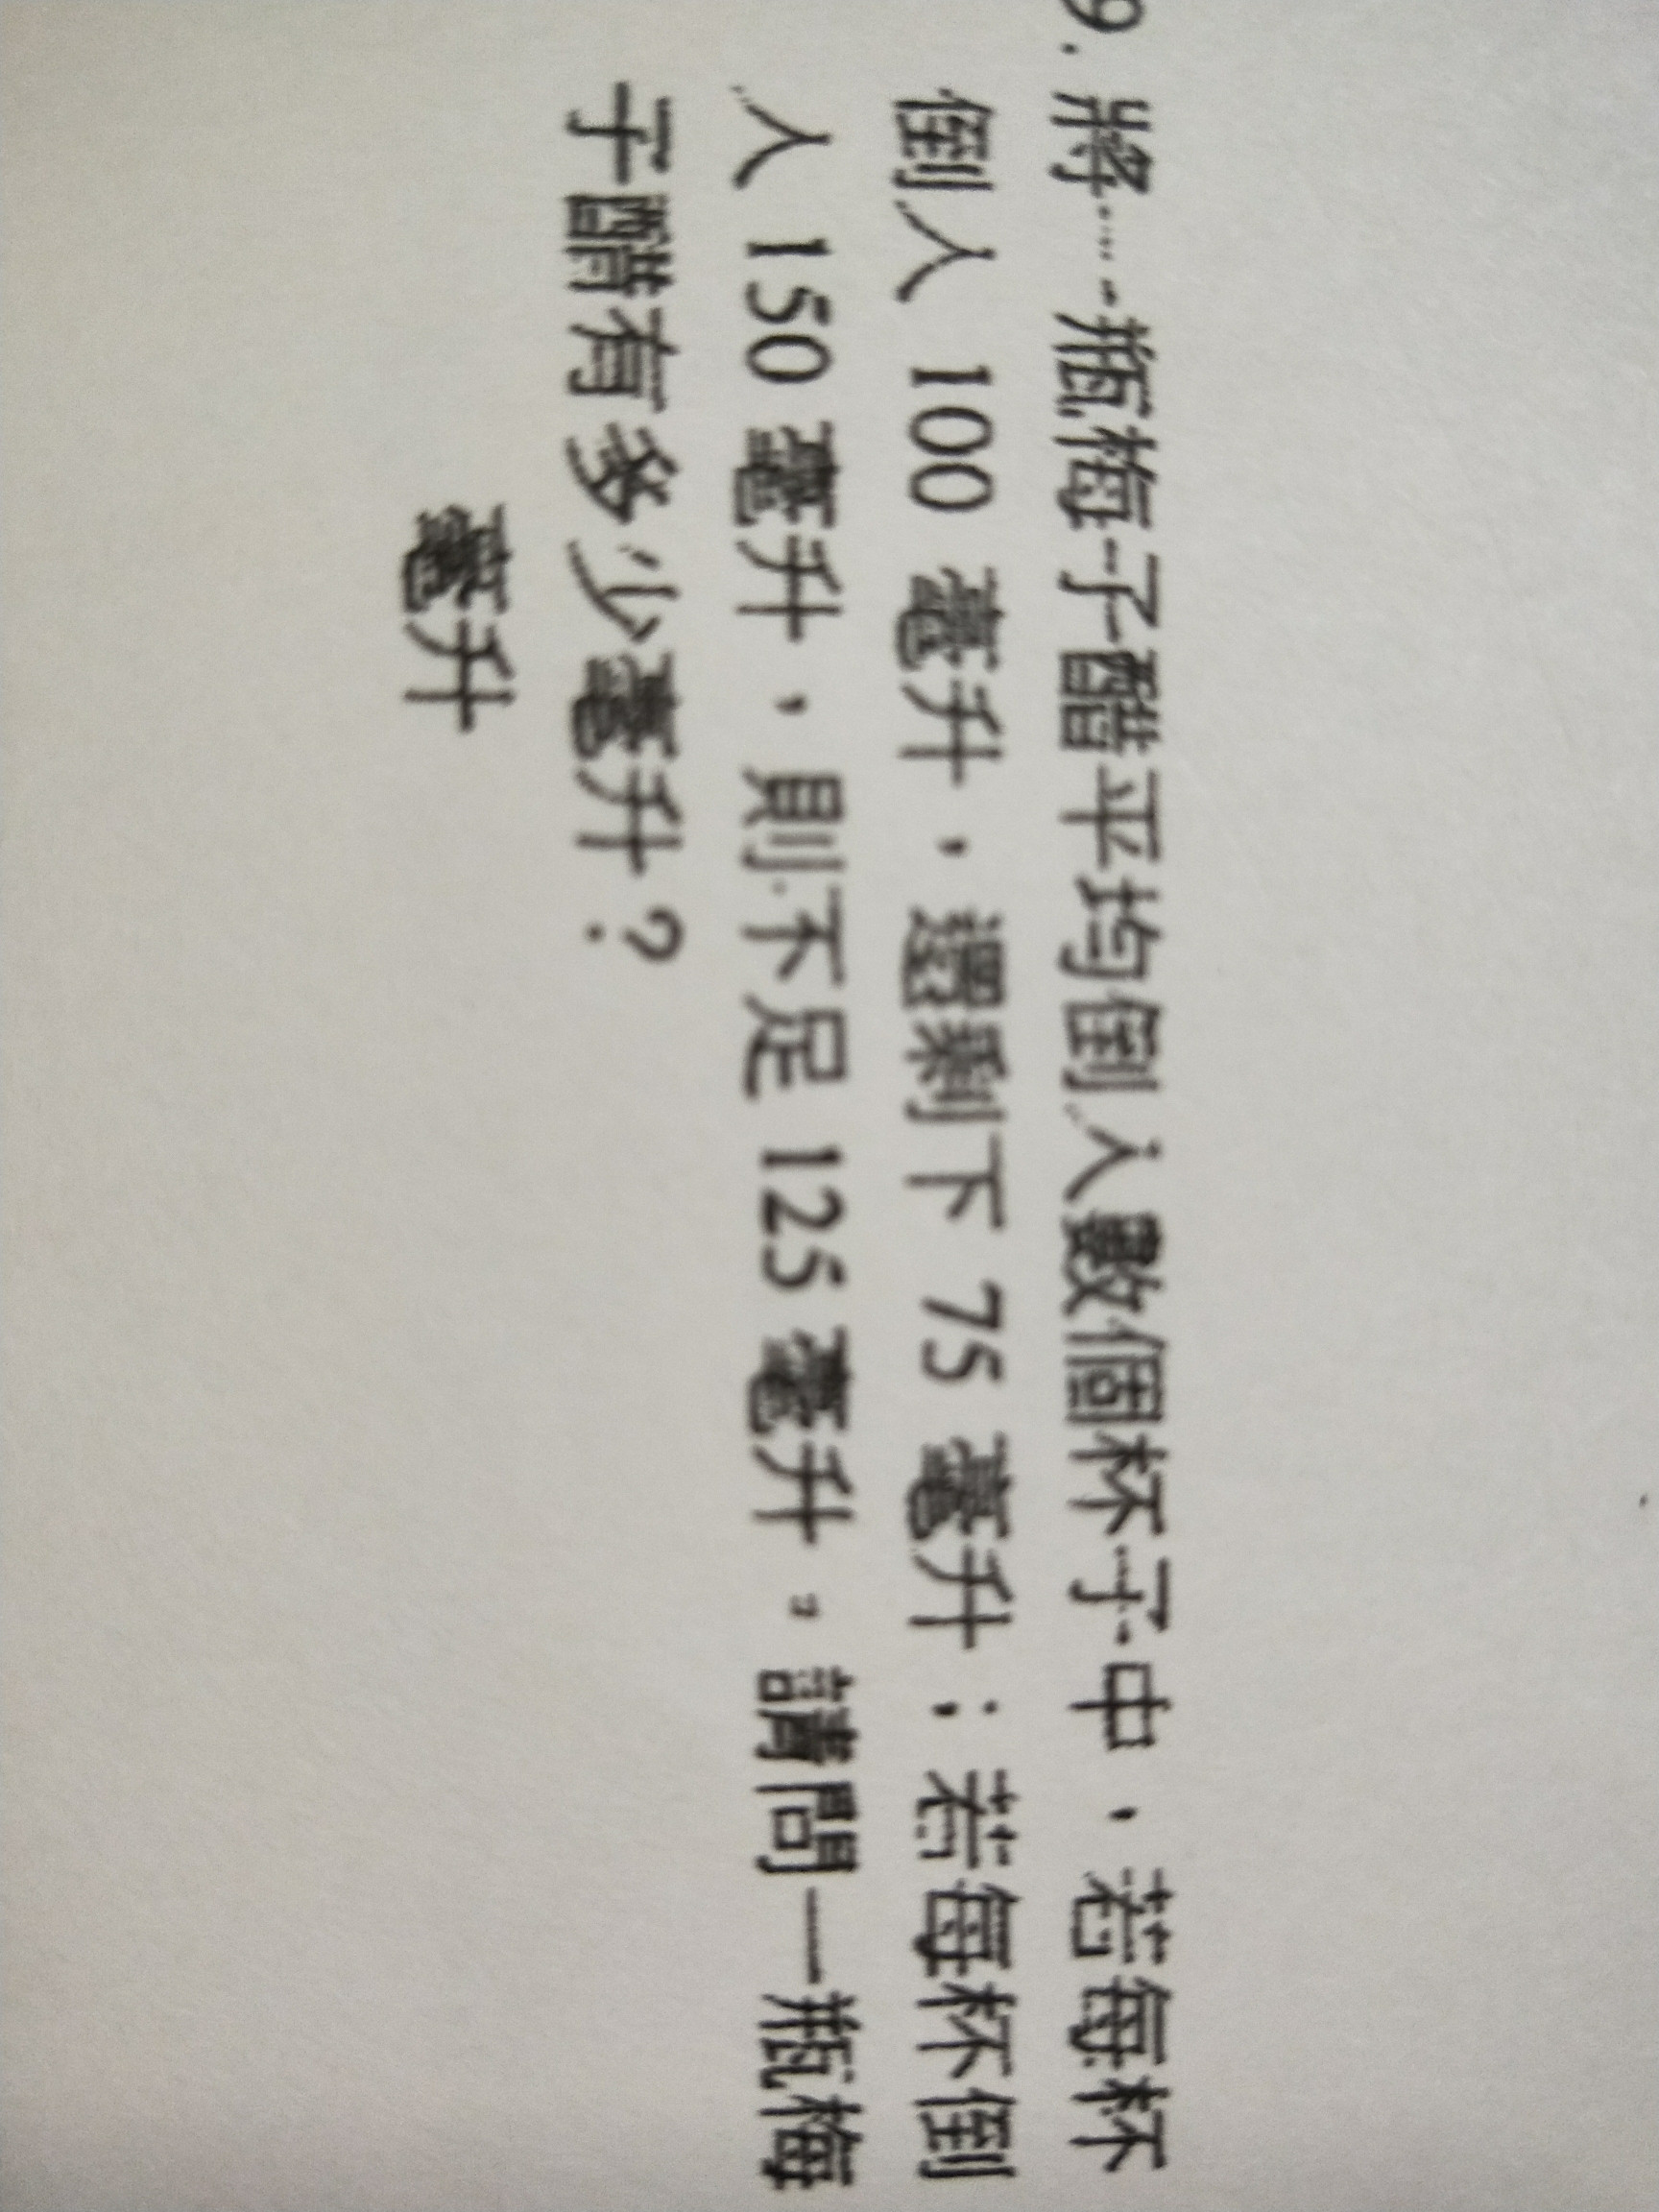 9. 將一瓶梅子醋平均倒入數個杯子中，若每杯
倒入 100 毫升，還剩下 75 毫升；若每杯倒
入 150 毫升，則不足 125 毫升。請問一瓶梅
子醋有多少毫升？
毫升